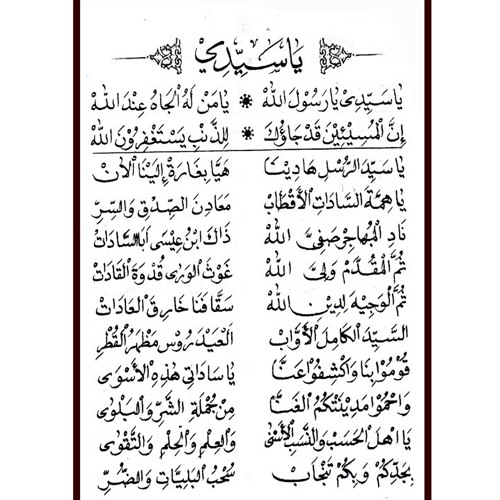 يَا سَيِّدِي
يَا سَيِّدِيْ يَا رَسُوْلَ اللهْ * يَا مَنْ لَهُ الْجَاهُ عِنْدَ اللهْ
إِنَّ الْمُسِيْئِيْنَ قَدْ جَاؤُكْ * لِلذَّنْبِ يَسْتَغْفِرُوْنَ اللهْ
يَا سَيِّدَ الرُّسْلِ هَادِيْنَا هَيَّا بِغَارَةْ إِلَيْنَا الْآنْ
يَا هِمَّةَ السَّادَاتِ الْأَقْطَابْ مَعَادِنَ الصِّدْقِ وَالسِّرِّ
نَادِ الْمُهَاجِرْ صَفِيَّ اللهْ ذَاكَ ابْنُ عِيْسَى أَبَا السَّادَاتْ
ثُمَّ الْمُقَدَّمْ وَلِيَّ اللهْ غَوْثَ الْوَرَى قُدْوَةَ الْقَادَاتْ
ثُمَّ الْوَجِيْهَ لِدِيْنِ اللهْ سَقَّافَنَا خَارِقَ الْعَادَاتْ
السَّيِّدَ الْكَامِلَ الْأَوَّابْ الْعَيْدَرُوسْ مَظْهَرُ الْقُطْرِ
قُوْمُوْا بِنَا وَاكْشِفُوْا عَنَّا يَا سَادَاتِي هٰذِهِ الْأَسْوَى
وَاحْمُوْا مَدِيْنَتَكُمُ الْغَنَّا مِنْ جُمْلَةِ الشَّرِّ وَالْبَلْوَى
يَا اَهْلَ الْحَسَبْ وَالنَّسَبْ الْأَسْنَى وَالْعِلْمِ وَالْحِلْمِ وَالتَّقْوَى
بِجَدِّكُمْ وَبِكُمْ تَنْجَابْ سُحُبُ الْبَلِيَّاتِ وَالضُّرِّ